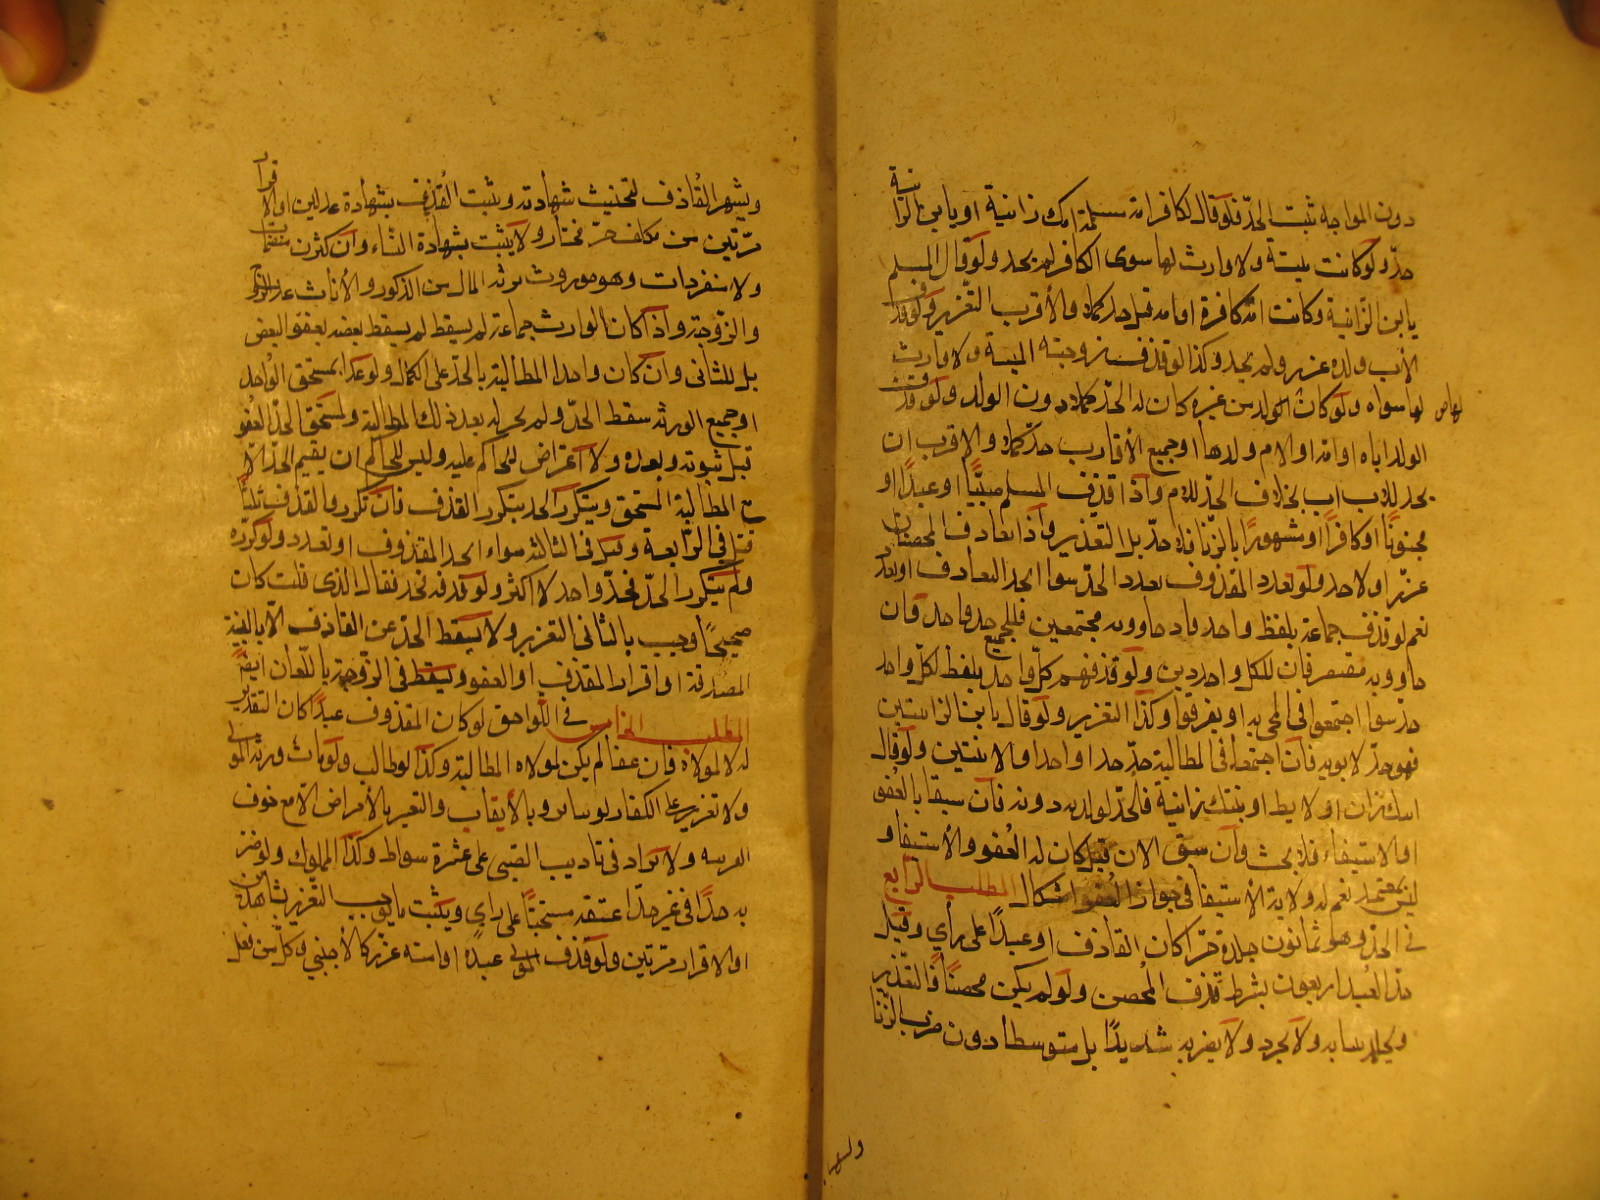 دون المواجه ثبت الحدّ فلو قال لكافر امه مسلمة امك زانية او يا بن الزانية
حدّ ولو كانت ميتة ولا وارث لها سوى الكافر لم يحد ولو قال المسلم
يا بن الزانية وكانت امه كافرة او امة قيل حد كملا والأقرب التعزير ولو قذف
الأب ولده عزر ولم يحد وكذا لو قذف زوجته الميتة ولا وارث
لها سواه ولو كان الولد من غيره كان له الحدّ كملا دون الولد ولو قذف
الولد اباه او امه او الام ولدها او جميع الأقارب حدّ كملا والاقرب ان
الجد للاب اب بخلاف الجد للام واذا قذف المسلم صبيًّا او عبدًا او
مجنونًا او كافرًا او مشهورًا بالزنا فلا حدّ بل التعذير واذا تقاذف المحصنان
عزّر او لا حد ولو تعدد المقذوف تعدد الحدّ سوا اتحد القاذف او تعدد
نعم لو قذف جماعة بلفظ واحد فان جاؤوا به مجتمعين فللجميع حد واحد وان
جاؤوا به مفترقين فلكل واحد حد ولو قذفهم كلّ واحد بلفظ لكل واحد
حد سوا اجتمعوا في المجي به او تفرقوا وكذا التعزير ولو قال يا بن الزانيين
فهو حدّ لابويه فان اجتمعا في المطالبة حدّ حدا واحدا والا اثنتين ولو قال
ابنك زان او لايط او بنتك زانية فالحد لولديه دونه فان سبقا بالعفو
او الاستيفاء فلا بحث وان سبق الاب قيل كان له العفو والاستيفا و
ليس بمعتمد نعم له ولاية الاستيفا في جواز العفو اشكال المطلب الرابع
في الحدّ وهو ثمانون جلدة حرّا كان القاذف او عبدًا على رأي وقيل
حدّ العبد اربعون بشرط قذف المحصن ولو لم يكن محصنًا فالتعزير
ويجلد بثيابه ولا يجرد ولا يضرب شديدًا بل متوسطا دون ضرب الزنا
ويشهر القاذف لتجتنب شهادته ويثبت القذف بشهادة عدلين او الاقرار
مرّتين من مكلف حرّ مختار ولا يثبت بشهادة النساء وان كثرن منضمات
ولا منفردات وهو موروث يرثه المال من الذكور والأناث عدا الزوج
والزوجة واذا كان الوارث جماعة لم يسقط بعضه بعفو البعض
بل للثاني وان كان واحدا المطالبة بالحدّ على الكمال ولو عفا مستحق الواحد
او جميع الورثة سقط الحدّ ولم يجز له بعد ذلك المطالبة ولمستحق الحدّ العفو
قبل ثبوته وبعده ولا اعتراض للحاكم عليه وليس للحاكم ان يقيم الحدّ الا
مع المطالبة المستحق ويتكرر الحد بتكرر القذف فان تكرر والقذف ثلثًا
قتل في الرابعة وقيل في الثالثة سواء اتحد المقذوف او تعدد ولو كرره
ولم يتكرر الحدّ فحدّ واحد لا اكثر ولو قذفه فحد فقال الذي قلت كان
صحيحًا وجب بالثاني التعزير ولا يسقط الحدّ عن القاذف الا بالبينة
المصدقة او اقرار المقذوف او العفو ويسقط في الزوجة باللعان ايضًا
المطلب الخامس في اللواحق لو كان المقذوف عبدًا كان التعذير
له لا لمولاه فان عفا لم يكن لمولاه المطالبة وكذا لو طالب ولو مات ورثه المولى
ولا تعزير على الكفار لو تنابزوا بالألقاب والتعيير بالأمراض الا مع خوف
الفتنة ولا يزاد في تاديب الصبي على عشرة سواط وكذا المملوك ولو ضرب
به حدًا في غير حدّ اعتقه مستحبًّا على رأي ويثبت ما يوجب التعزير بشاهدين
او الاقرار مرّتين ولو قذف المولى عبده او امته عزر كالأجنبي وكل من فعل